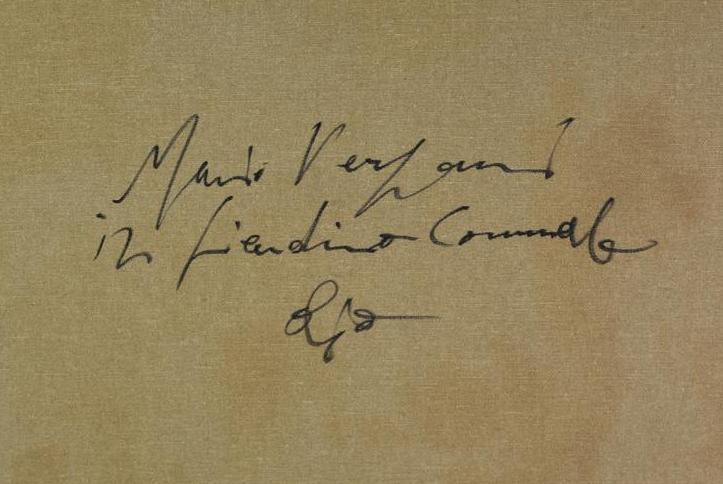 Mario Vergani
il giardino Comunale
olio